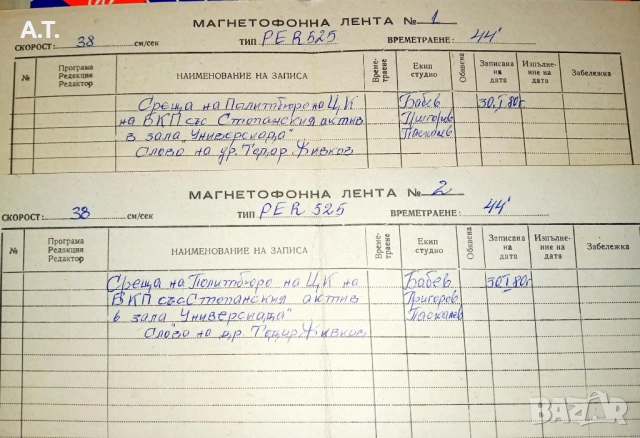 А.Т.
МАГНЕТОФОННА ЛЕНТА № 1
СКОРОСТ: 38 см/сек ТИП PER 525 ВРЕМЕТРАЕНЕ: 44'
№ Програма Редакция Редактор НАИМЕНОВАНИЕ НА ЗАПИСА Време-траене Екип студио Обявена Записана на дата Изпълне-ние на дата Забележка
Среща на Политбюро на ЦК Бабев 30.I.80г
на БКП със Стопанския актив Григоров
в зала "Универсиада" Паскалев
Слово на др. Тодор Живков
МАГНЕТОФОННА ЛЕНТА № 2
СКОРОСТ: 38 см/сек ТИП PER 525 ВРЕМЕТРАЕНЕ: 44'
№ Програма Редакция Редактор НАИМЕНОВАНИЕ НА ЗАПИСА Време-траене Екип студио Обявена Записана на дата Изпълне-ние на дата Забележка
Среща на Политбюро на ЦК на Бабев 30.I.80г
БКП със Стопанския актив Григоров
в зала "Универсиада" Паскалев
Слово на др. Тодор Живков
BAZAR